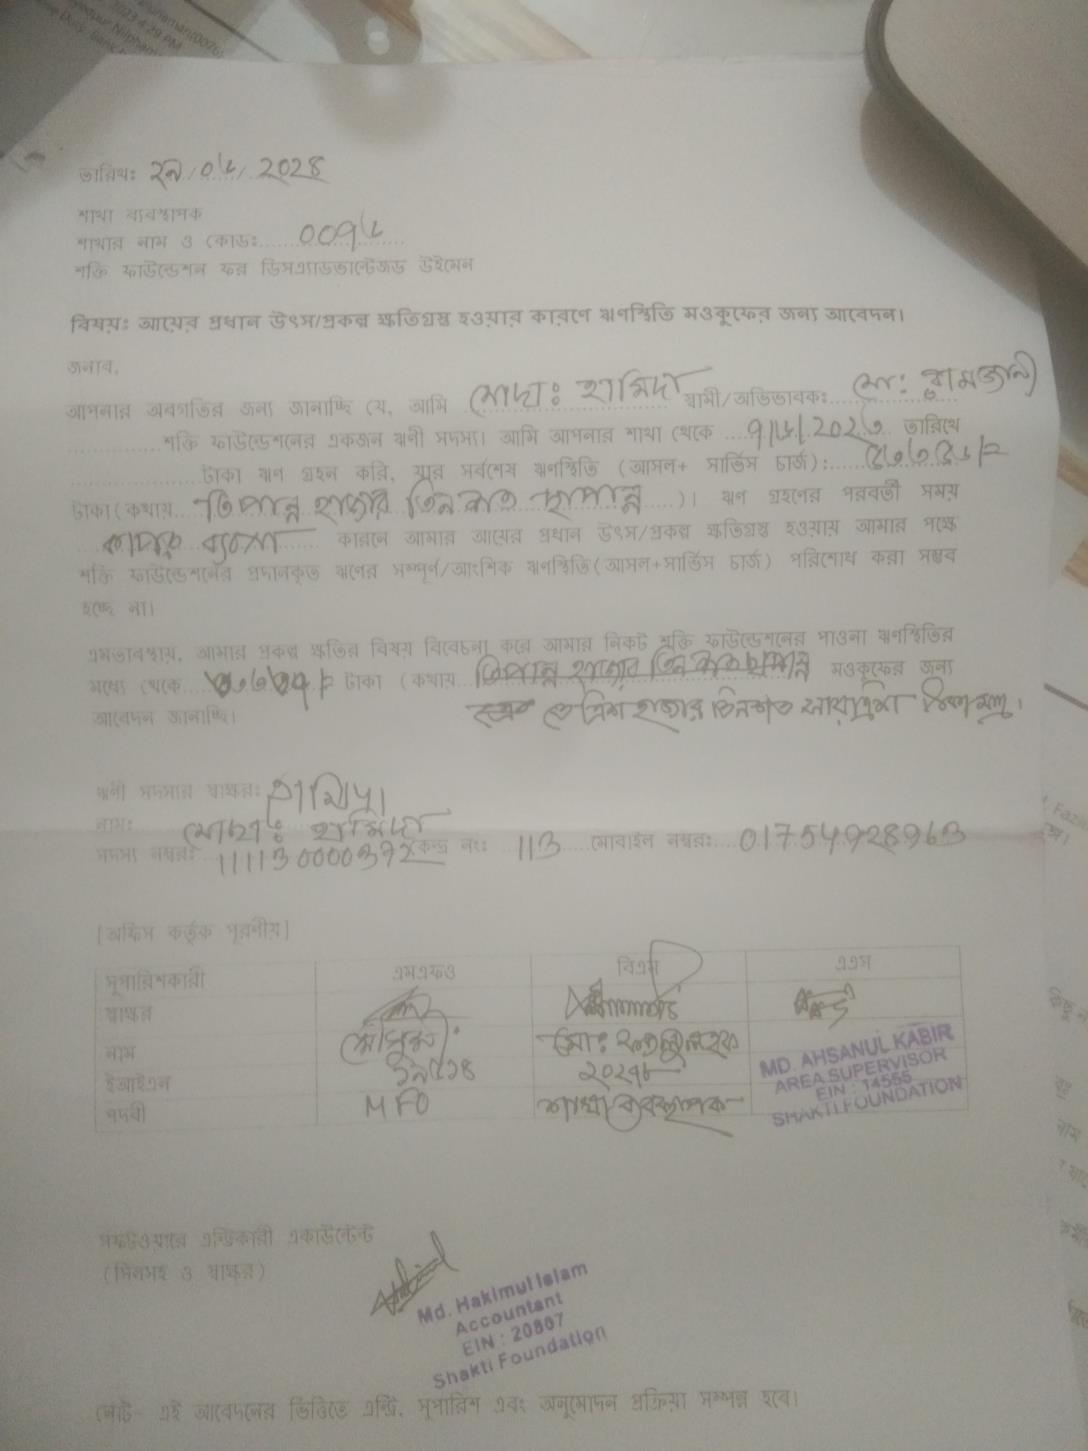 তারিখঃ ২৯/০৫/ 2028
শাখা ব্যবস্থাপক
শাখার নাম ও কোডঃ......00৭৫
শক্তি ফাউন্ডেশন ফর ডিসএ্যাডভান্টেজড উইমেন
বিষয়ঃ আয়ের প্রধান উৎস/প্রকল্প ক্ষতিগ্রস্থ হওয়ার কারণে ঋণস্থিতি মওকুফের জন্য আবেদন।
জনাব,
আপনার অবগতির জন্য জানাচ্ছি যে, আমি মোছাঃ হামিদা স্বামী/অভিভাবকঃ মোঃ রমজানী
শক্তি ফাউন্ডেশনের একজন ঋণী সদস্য। আমি আপনার শাখা থেকে ৭/৫/202৩ তারিখে
টাকা ঋণ গ্রহন করি, যার সর্বশেষ ঋণস্থিতি (আসল+ সার্ভিস চার্জ): ৫৩৩৫৬/২
টাকা(কথায় তিপান্ন হাজার তিনশত ছাপান্ন )। ঋণ গ্রহণের পরবর্তী সময়
কাপড় ব্যবসা কারনে আমার আয়ের প্রধান উৎস/প্রকল্প ক্ষতিগ্রস্থ হওয়ায় আমার পক্ষে
শক্তি ফাউন্ডেশনের প্রদানকৃত ঋণের সম্পূর্ণ/আংশিক ঋণস্থিতি(আসল+সার্ভিস চার্জ) পরিশোধ করা সম্ভব
হচ্ছে না।
এমতাবস্থায়, আমার প্রকল্প ক্ষতির বিষয় বিবেচনা করে আমার নিকট শক্তি ফাউন্ডেশনের পাওনা ঋণস্থিতির
মধ্যে থেকে টাকা (কথায় তিপান্ন হাজার তিনশত ছাপান্ন মওকুফের জন্য
আবেদন জানাচ্ছি। তেত্রিশ হাজার তিনশত সায়ত্রিশ টাকা মাত্র।
ঋণী সদস্যর স্বাক্ষরঃ হামিদা
নামঃ মোছাঃ হামিদা
সদস্য নম্বরঃ 111130000372 কেন্দ্র নংঃ 113 মোবাইল নম্বরঃ 01754928963
[অফিস কর্তৃক পূরণীয়]
সুপারিশকারী এমএফও বিএম এএস
স্বাক্ষর
নাম মোঃ
ইআইএন ১৯৫২৪ ২০২৭৮
পদবী MFO শাখা ব্যবস্থাপক
MD. AHSANUL KABIR
AREA SUPERVISOR
EIN : 14555
SHAKTI FOUNDATION
সফটওয়ারে এন্ট্রিকারী একাউন্টেন্ট
(সিলসহ ও স্বাক্ষর)
Md. Hakimul Islam
Accountant
EIN : 20807
Shakti Foundation
নোট- এই আবেদনের ভিত্তিতে এন্ট্রি, সুপারিশ এবং অনুমোদন প্রক্রিয়া সম্পন্ন হবে।